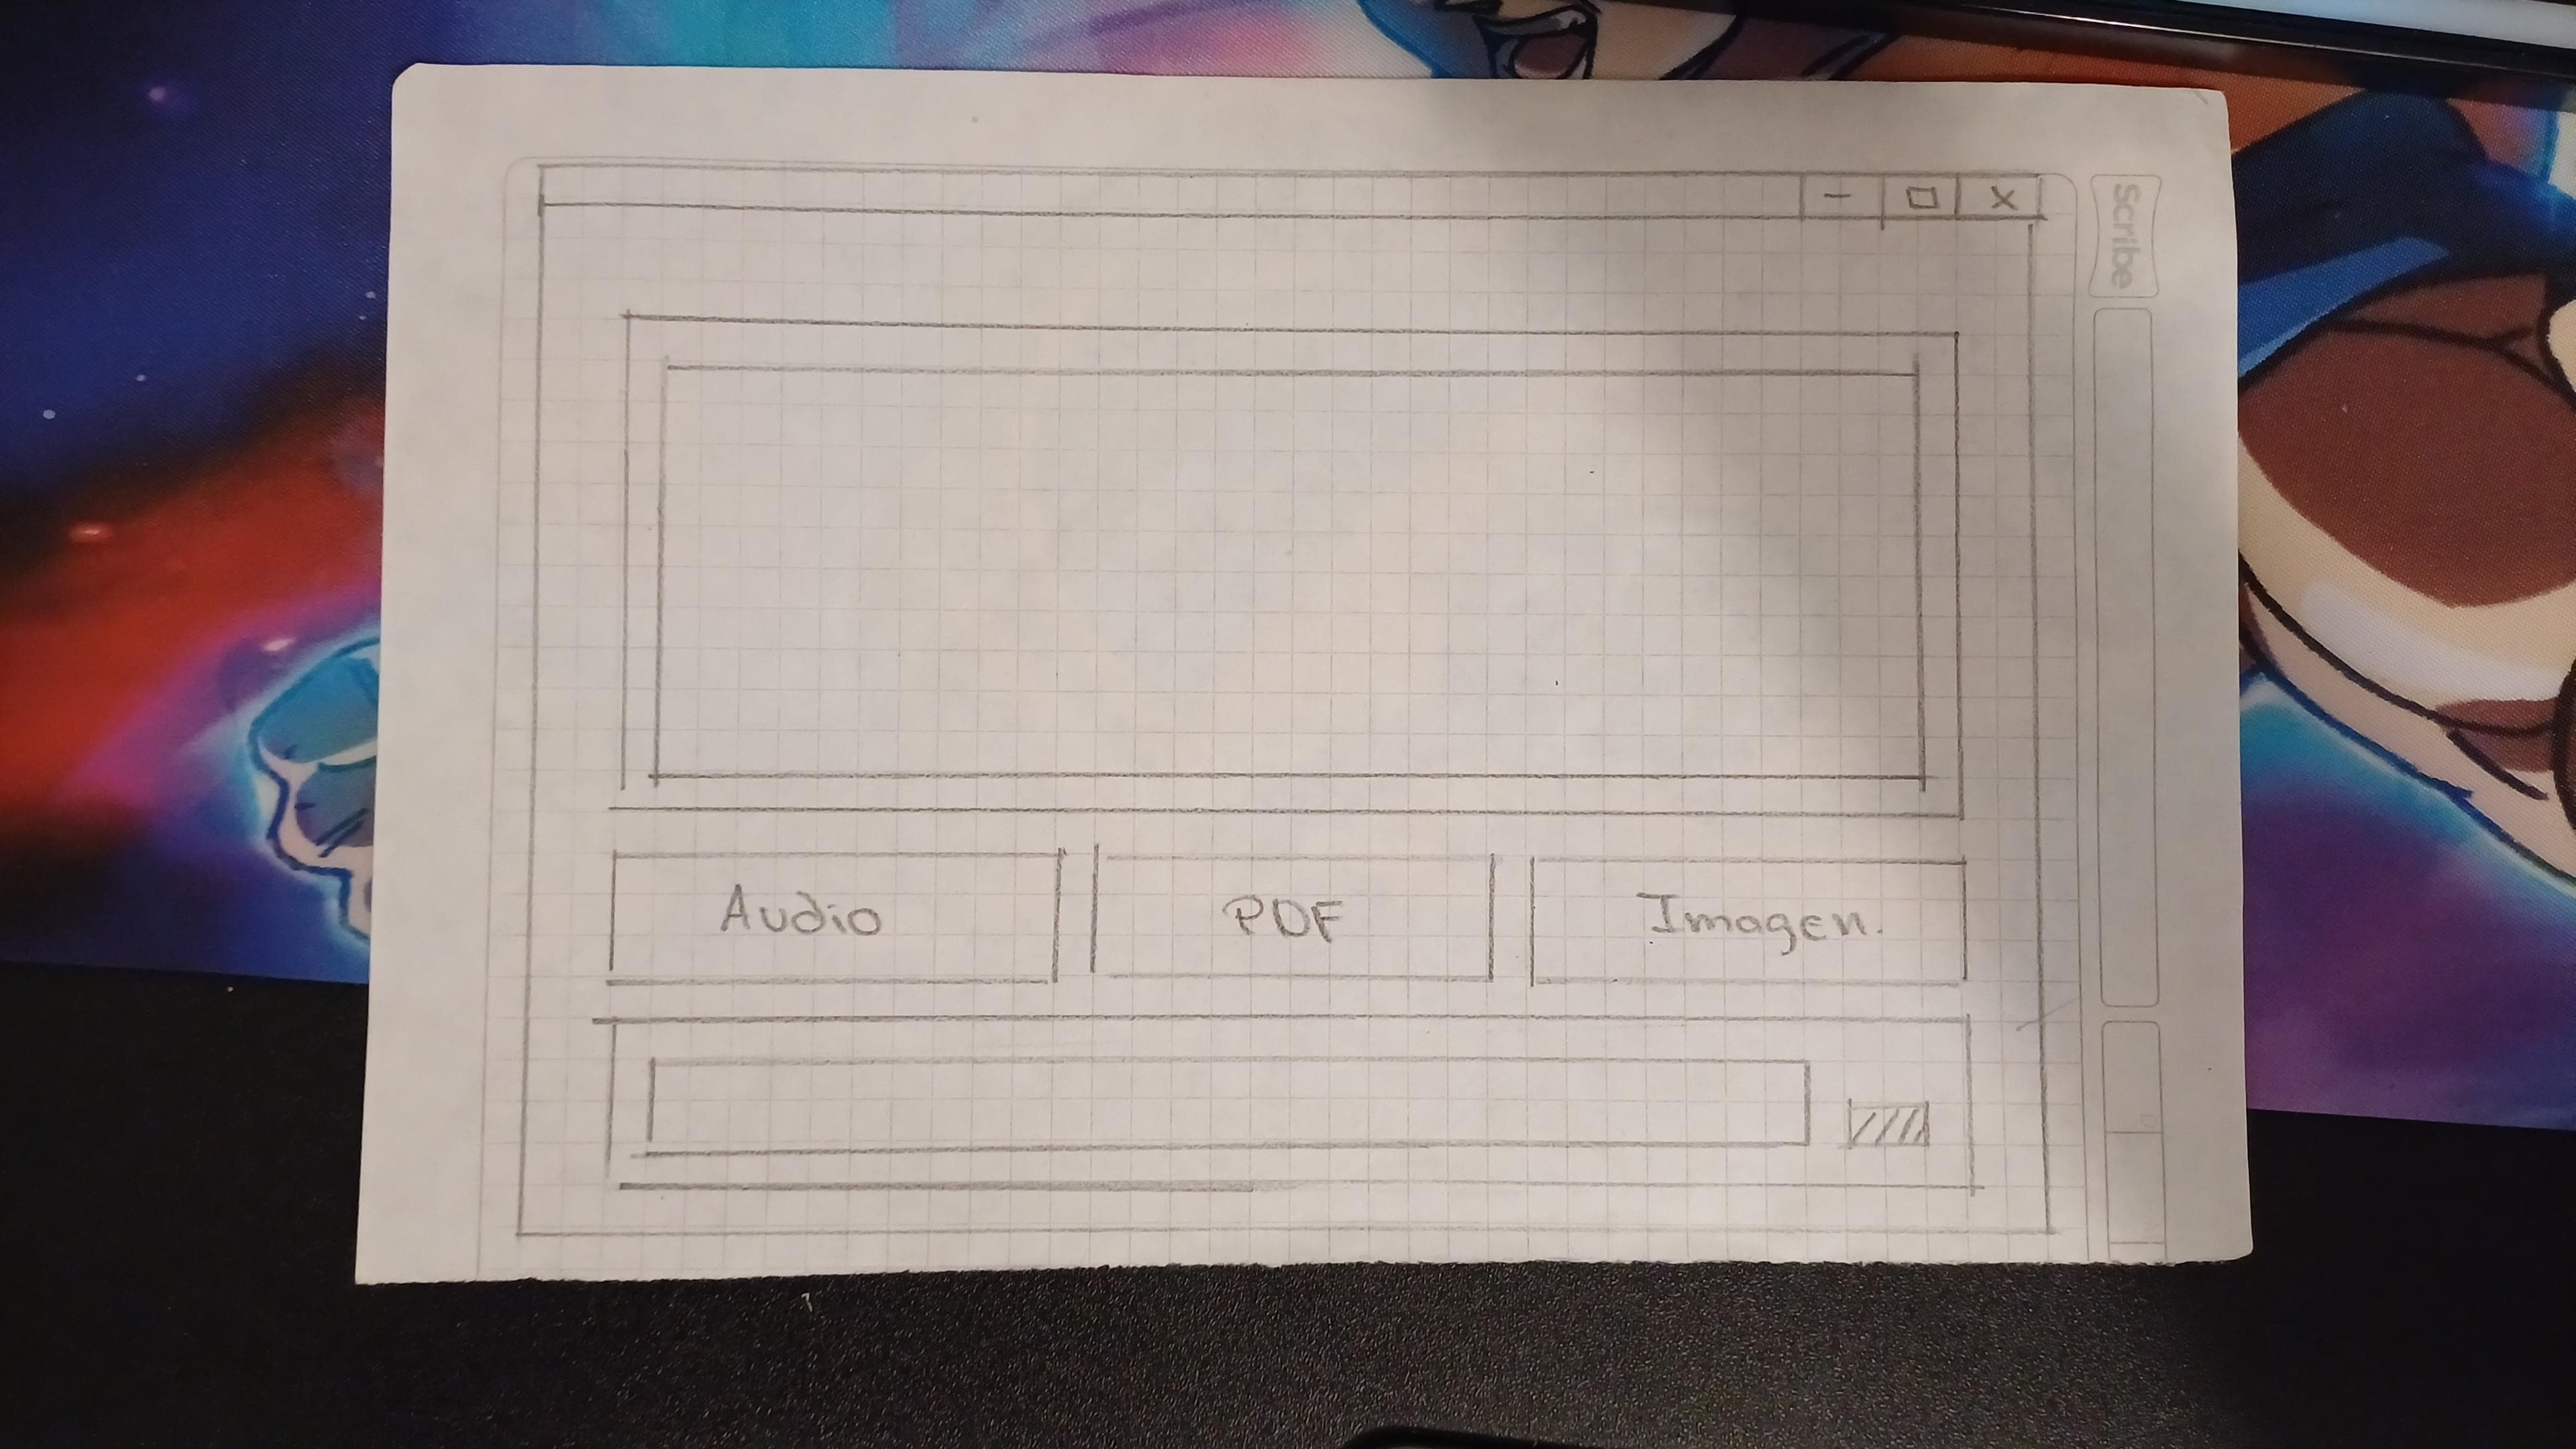 Scribe
X
Audio
PDF
Imagen.